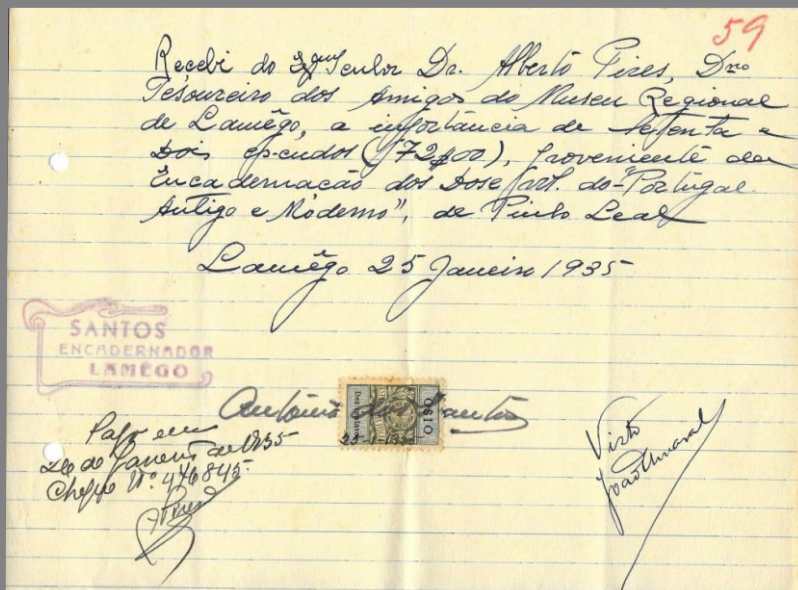 59
Recebi do Exmo Senhor Dr. Alberto Pires, Dmo
Tesoureiro dos Amigos do Museu Regional
de Lamêgo, a importância de Setenta e
Dois escudos (72$00), proveniente da
Encadernação dos Dose vol. do "Portugal
Antigo e Moderno", de Pinho Leal
Lamêgo 25 Janeiro 1935
SANTOS
ENCADERNADOR
LAMÊGO
António dos Santos
25-1-1935
$10
Pago em
26 de Janeiro de 1935
Cheque Nº 446845.
APires
Visto
João Amaral